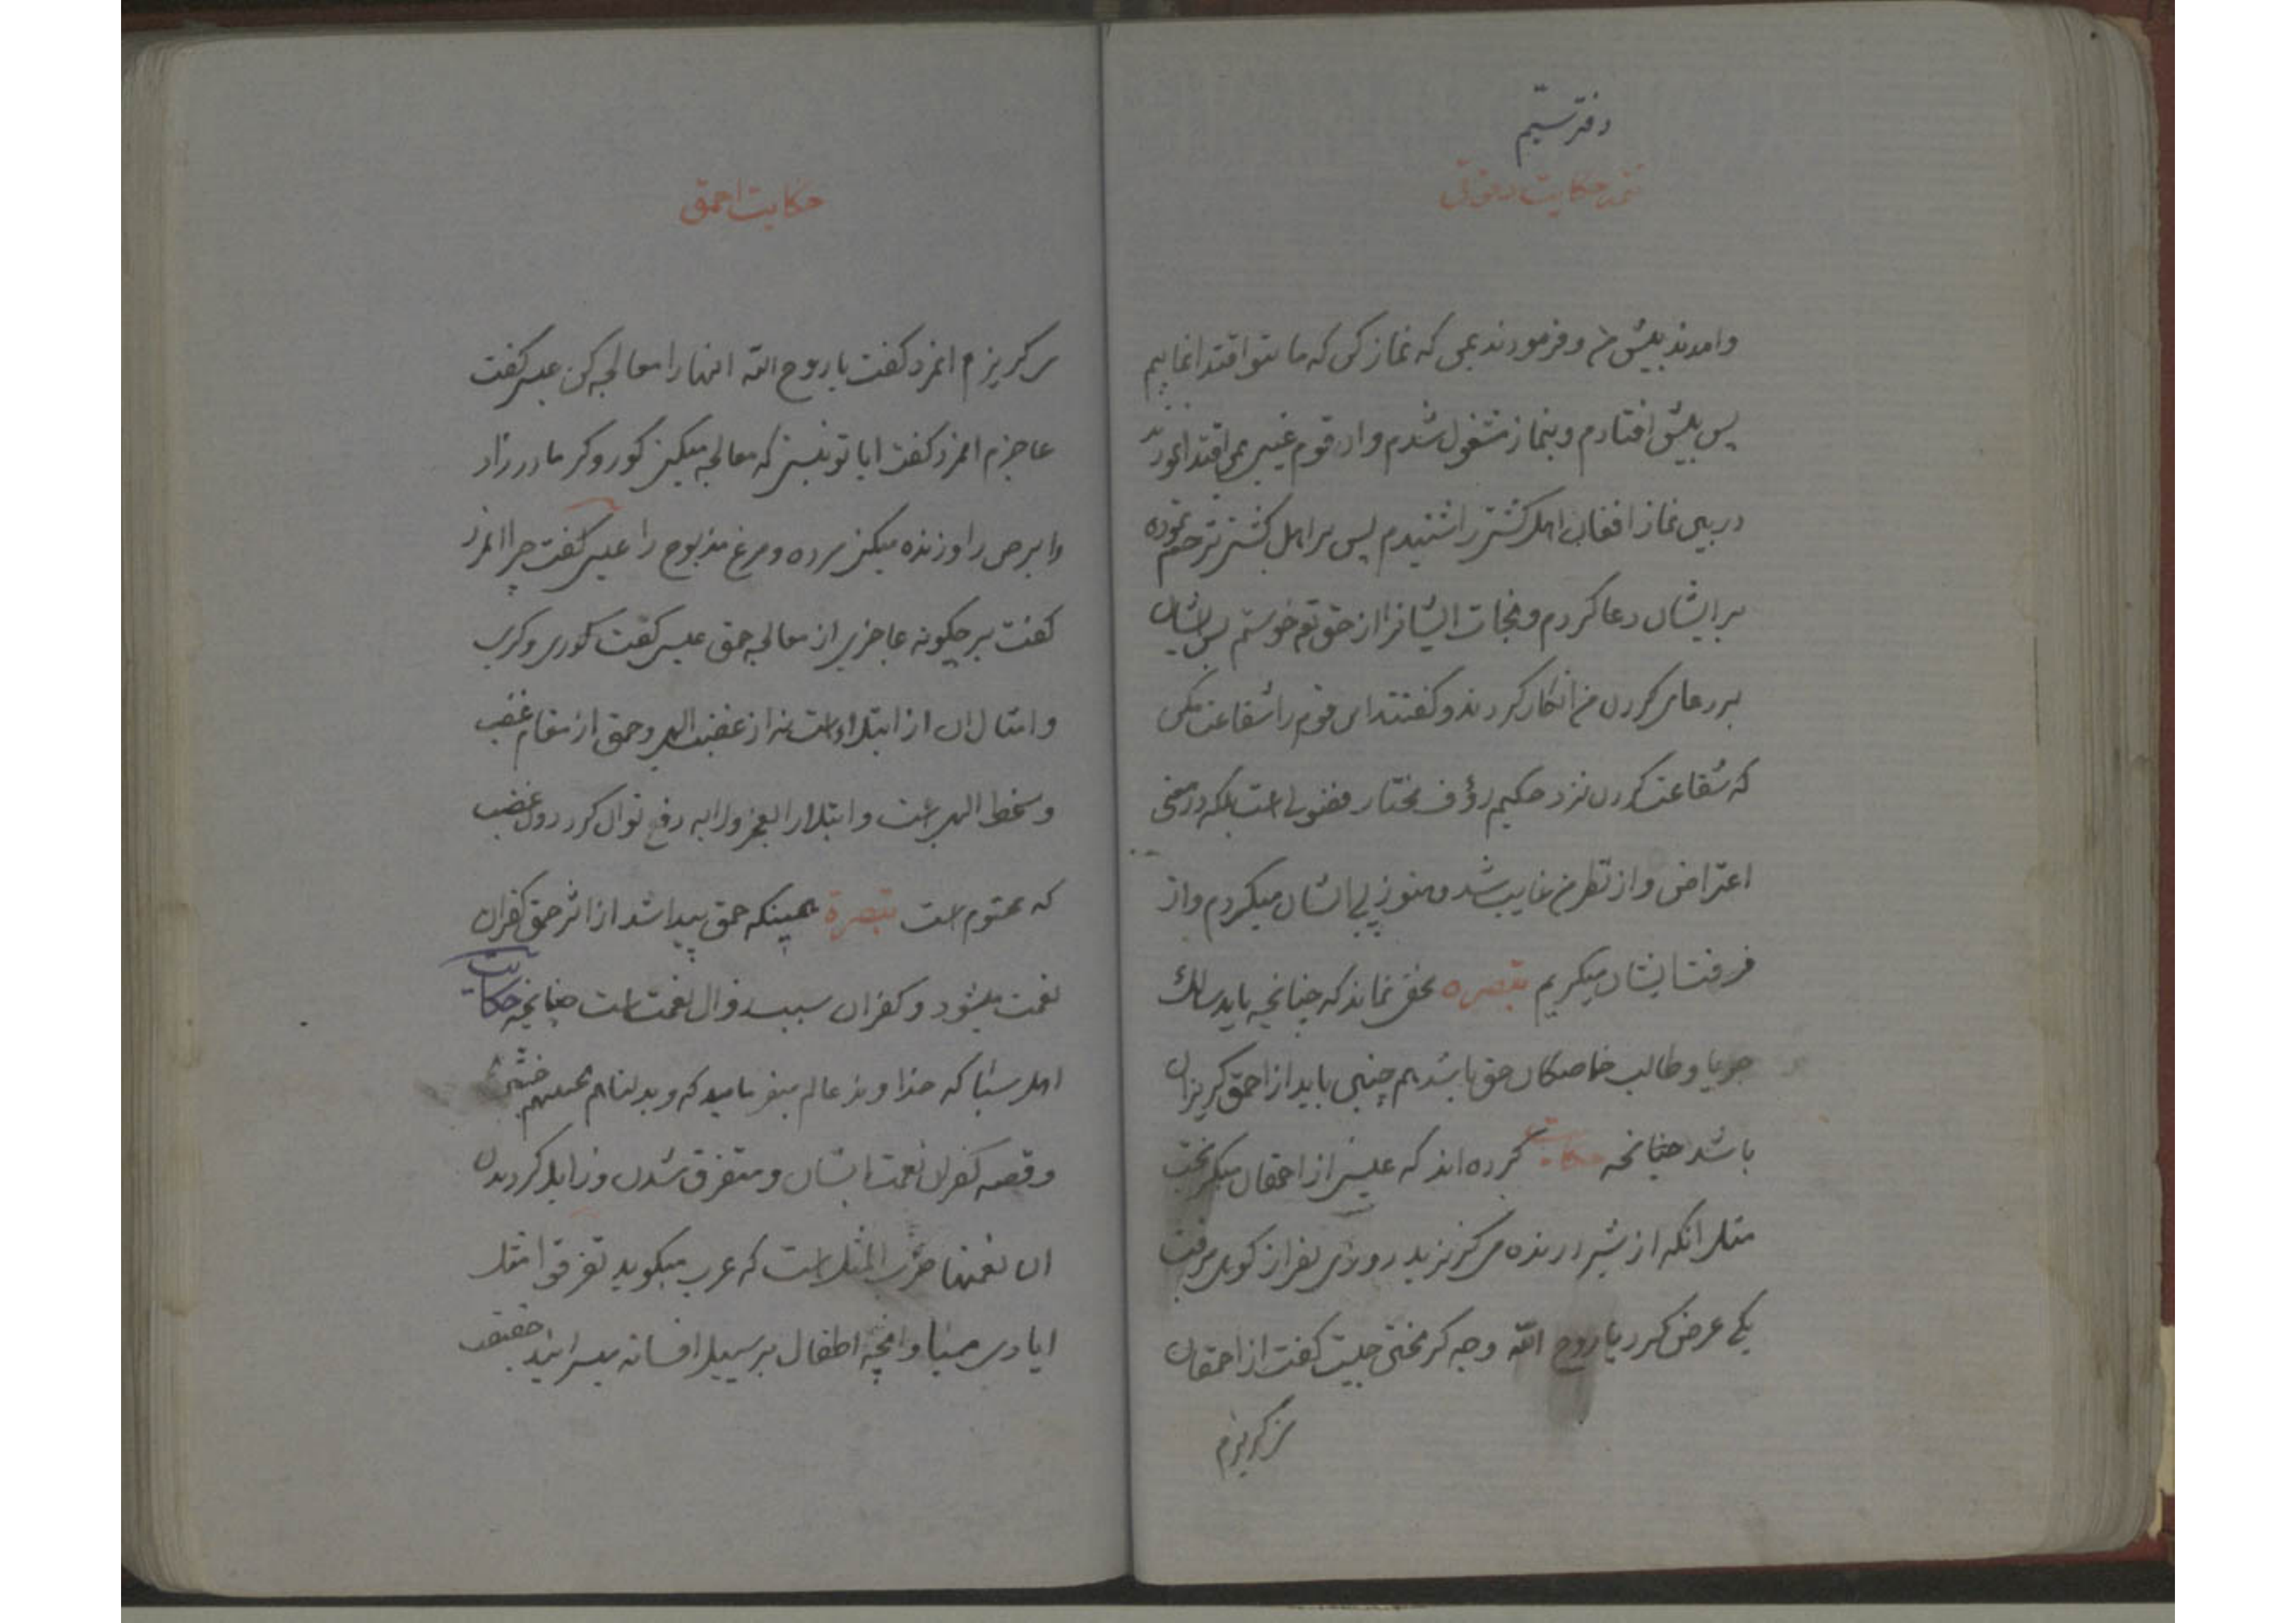 دفتر سیّم
تتمه حکایت دقوقی
وامدند بپیش من و فرمودند بمن که نماز کن که ما بتو اقتدا نماییم
پس بپیش افتادم و بنماز مشغول شدم و ان قوم غیبی بمن اقتدا نمودند
در بین نماز افغان اهل کشتی را شنیدم پس بر اهل کشتی ترحم نموده
برایشان دعا کردم و نجات ایشانرا از حق تعـ خواستم پس ایشان
بر دعای کردن من انکار کردند و کفتند ای قوم را شفاعت مکن
که شفاعت کردن نزد حکیم رؤف مختار فضولی است بلکه در معنی
اعتراض و از نظر من غایب شدند هنوز پی ایشان میکردم و از
فرقت ایشان میکریم تبصره مخفی نماند که چنانچه باید سالک
جویا و طالب خاصکان حق باشد هم چنین باید از احمق کریزان
باشد چنانچه حکایت کرده اند که عیسی از احمقان میکریخت
مثل انکه از شیر درنده می کریزید روزی نفر از کوی میرفت
یکی عرض کرد یا روح الله وجه کریختن چیست کفت از احمقان
می کریزم
حکایت احمق
می کریزم انمرد کفت یا روح الله انها را معالجه کن عیسی کفت
عاجزم انمرد کفت ایا تو نیستی که معالجه میکنی کور و کر مادرزاد
و ابرص را و زنده میکنی مرده و مرغ مذبوح را عیسی کفت چرا انمرد
کفت پس چکونه عاجزی از معالجه حمق عیسی کفت کوری و کری
و امثال ان از ابتلاء است نه از غضب الهی و حمق از مقام غضب
و سخط الهی است و ابتلا را بعجز و لابه دفع توان کرد دون غضب
که محتوم است تبصرة همینکه حمق پیدا شد از اثر حمق کفران
نعمت میشود و کفران سبب زوال نعمت است چنانچه حکایت
اهل سبا که خداوند عالم میفرماید که و بدلناهم بجنتیهم جنتین
و قصه کفران نعمت ایشان و متفرق شدن و زایل کردیدن
ان نعمتها ضرب المثل است که عرب میکوید تفرقوا مثل
ایادی سبا و انچه اطفال بر سبیل افسانه میسرایند حقیقت